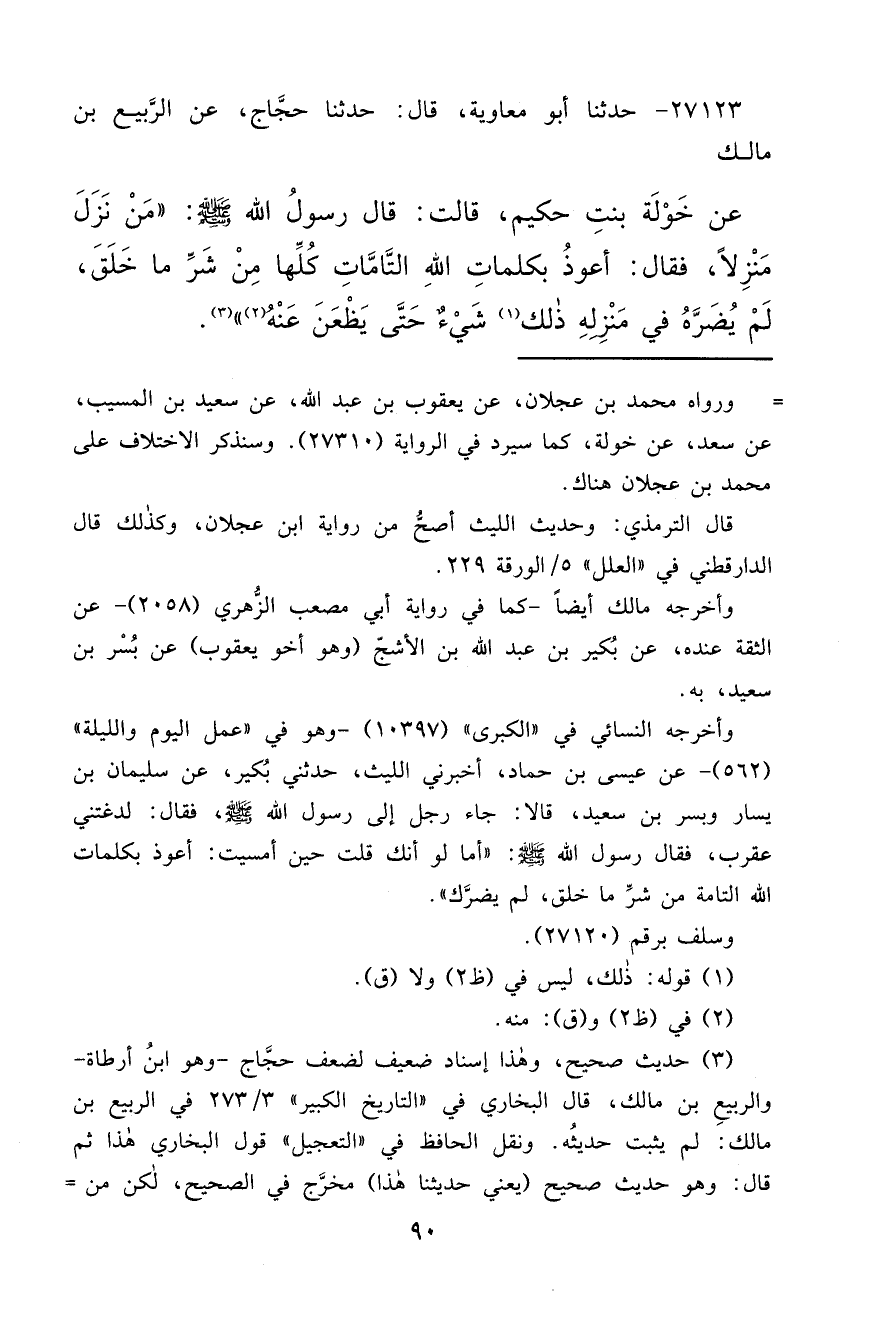 ٢٧١٢٣- حدثنا أبو معاوية، قال: حدثنا حجَّاج، عن الرَّبيع بن
مالك
عن خَوْلَة بنتِ حكيم، قالت: قال رسولُ الله ﷺ: «مَنْ نَزَلَ
مَنْزِلاً، فقال: أعوذُ بكلماتِ اللهِ التَّامَّاتِ كُلِّها مِنْ شَرِّ ما خَلَقَ،
لَمْ يُضَرَّهُ في مَنْزِلِهِ ذٰلك(١) شَيْءٌ حَتَّى يَظْعَنَ عَنْهُ(٢)»(٣).
= ورواه محمد بن عجلان، عن يعقوب بن عبد الله، عن سعيد بن المسيب،
عن سعد، عن خولة، كما سيرد في الرواية (٢٧٣١٠). وسنذكر الاختلاف على
محمد بن عجلان هناك.
قال الترمذي: وحديث الليث أصحُّ من رواية ابن عجلان، وكذٰلك قال
الدارقطني في «العلل» ٥/ الورقة ٢٢٩.
وأخرجه مالك أيضاً -كما في رواية أبي مصعب الزُّهري (٢٠٥٨)- عن
الثقة عنده، عن بُكير بن عبد الله بن الأشجّ (وهو أخو يعقوب) عن بُسْر بن
سعيد، به.
وأخرجه النسائي في «الكبرى» (١٠٣٩٧) -وهو في «عمل اليوم والليلة»
(٥٦٢)- عن عيسى بن حماد، أخبرني الليث، حدثني بُكير، عن سليمان بن
يسار وبسر بن سعيد، قالا: جاء رجل إلى رسول الله ﷺ، فقال: لدغتني
عقرب، فقال رسول الله ﷺ: «أما لو أنك قلت حين أمسيت: أعوذ بكلمات
الله التامة من شرِّ ما خلق، لم يضرَّك».
وسلف برقم (٢٧١٢٠).
(١) قوله: ذٰلك، ليس في (ظ٢) ولا (ق).
(٢) في (ظ٢) و(ق): منه.
(٣) حديث صحيح، وهٰذا إسناد ضعيف لضعف حجَّاج -وهو ابنُ أرطاة-
والربيعِ بن مالك، قال البخاري في «التاريخ الكبير» ٢٧٣/٣ في الربيع بن
مالك: لم يثبت حديثُه. ونقل الحافظ في «التعجيل» قول البخاري هٰذا ثم
قال: وهو حديث صحيح (يعني حديثنا هٰذا) مخرَّج في الصحيح، لٰكن من =
٩٠